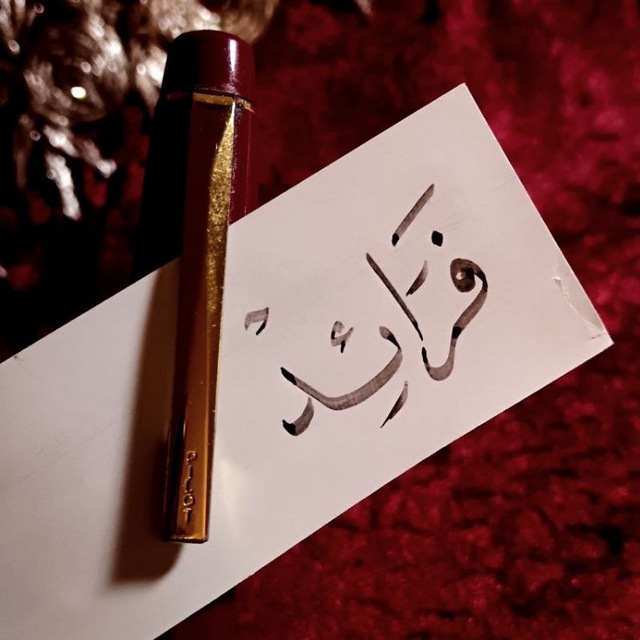 فَرَائِدْ
PILOT